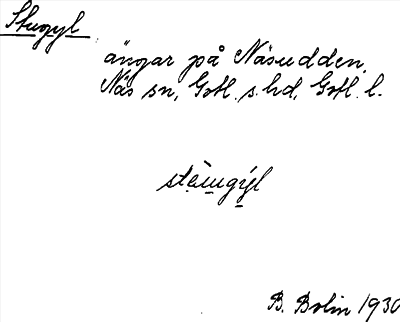 Stugyl
ängar på Näsudden,
Näs sn, Gotl. s. hd, Gotl. l.
B. Bolin 1930